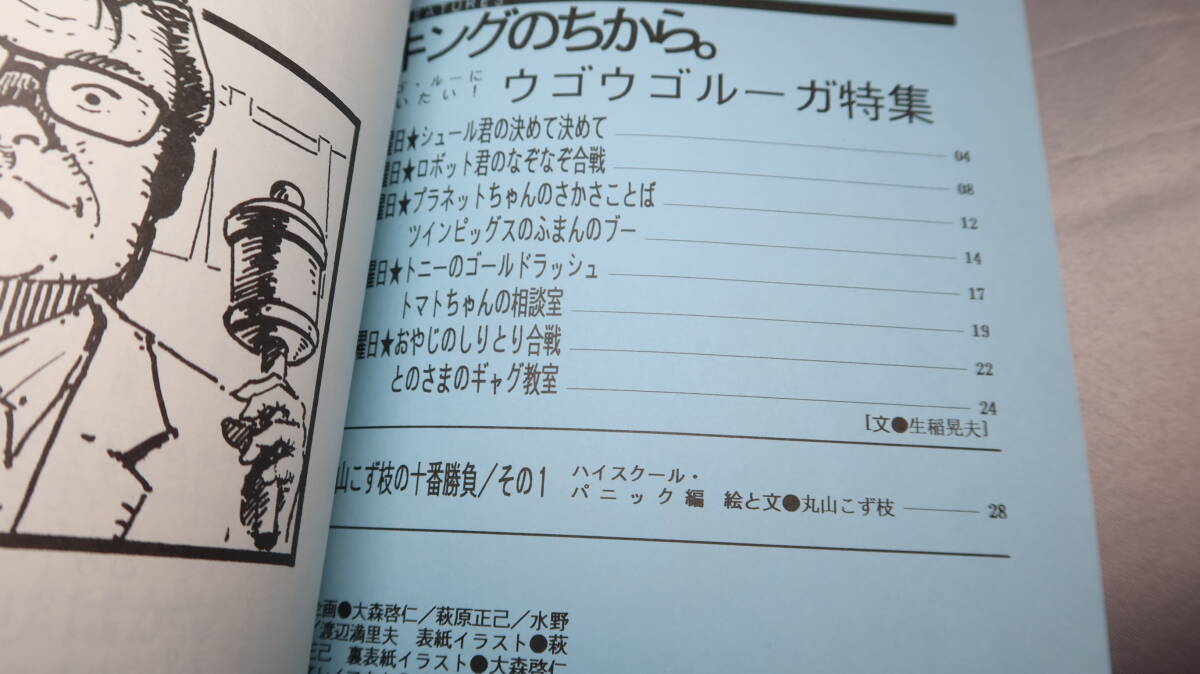 ATURES
キングのちから。
ゴ・ルーに
いたい!
ウゴウゴルーガ特集
曜日★シュール君の決めて決めて 04
曜日★ロボット君のなぞなぞ合戦 08
曜日★プラネットちゃんのさかさことば 12
ツインピッグスのふまんのブー 14
曜日★トニーのゴールドラッシュ 17
トマトちゃんの相談室 19
曜日★おやじのしりとり合戦 22
とのさまのギャグ教室 24
[文●生稲晃夫]
山こず枝の十番勝負/その1 ハイスクール・
パニック編 絵と文●丸山こず枝 28
企画●大森啓仁/萩原正己/水野
/渡辺満里夫 表紙イラスト●萩
正己 裏表紙イラスト●大森啓仁